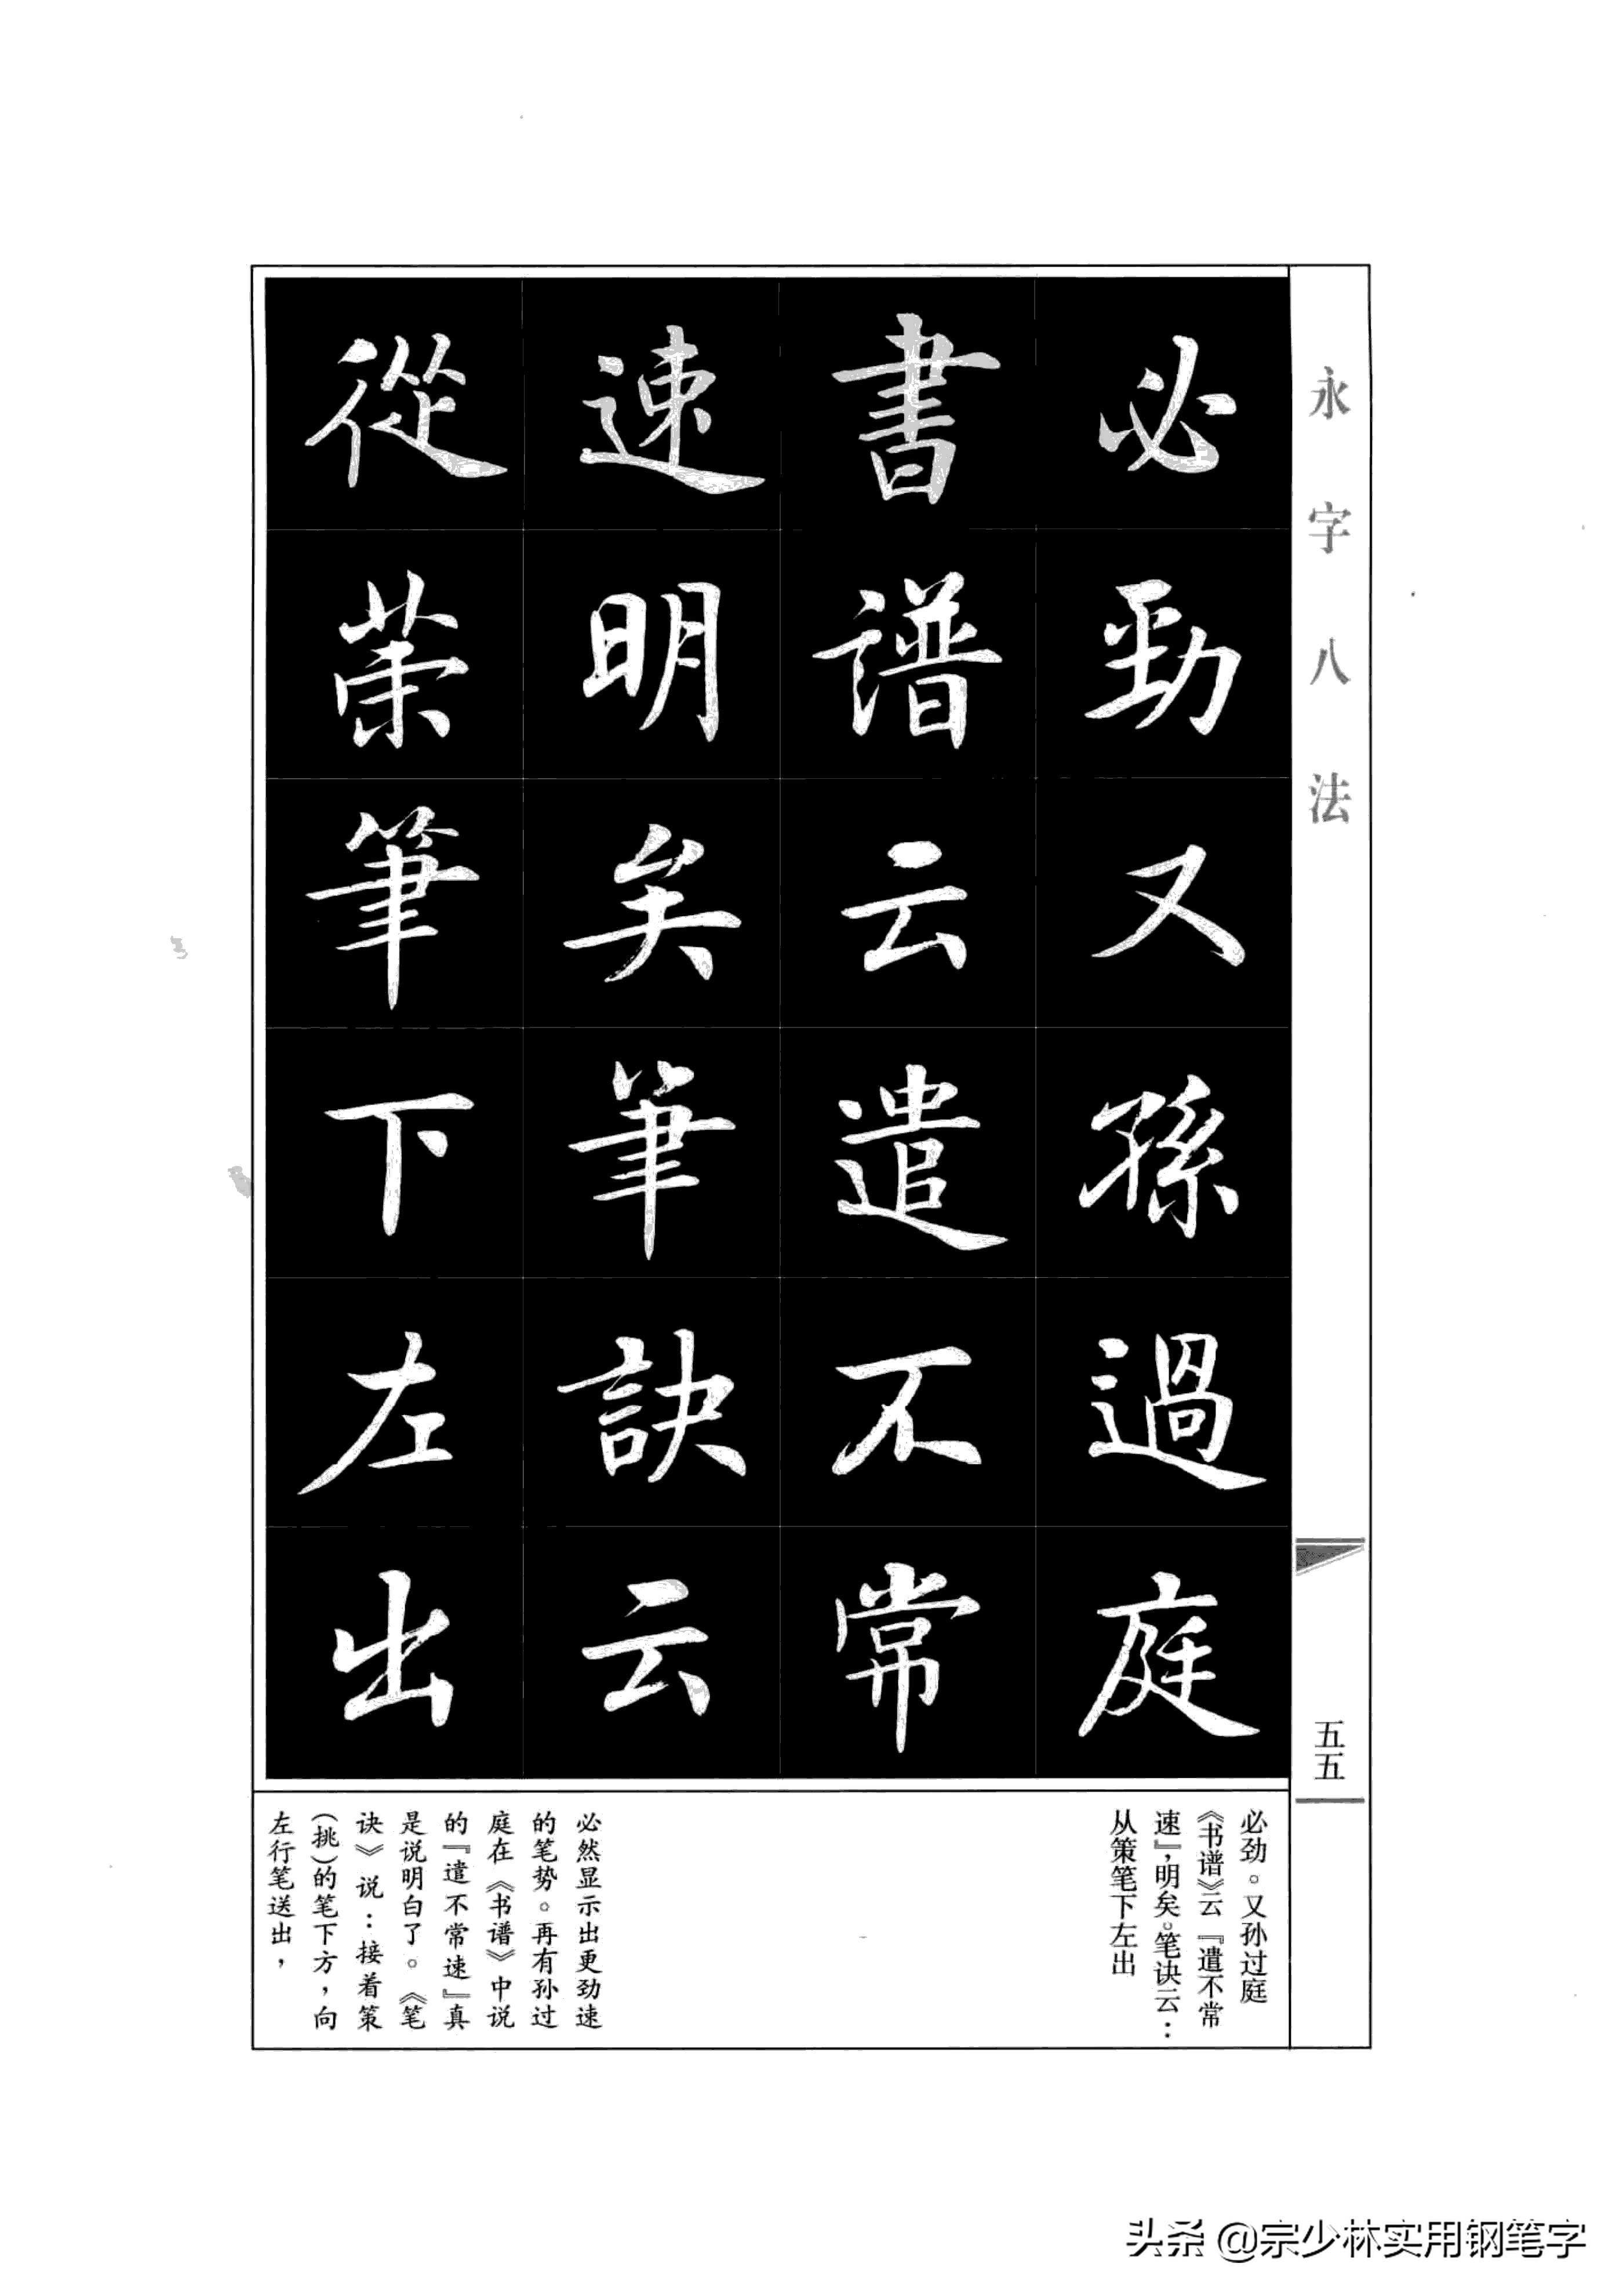 永字八法
必勁又孫過庭
書譜云遣不常
速明矣筆訣云
從策筆下左出
五五
必劲。又孙过庭
《书谱》云『遣不常
速』，明矣。笔诀云：
从策笔下左出
必然显示出更劲速
的笔势。再有孙过
庭在《书谱》中说
的『遣不常速』真
是说明白了。《笔
诀》说：接着策
（挑）的笔下方，向
左行笔送出，
头条 @宗少林实用钢笔字